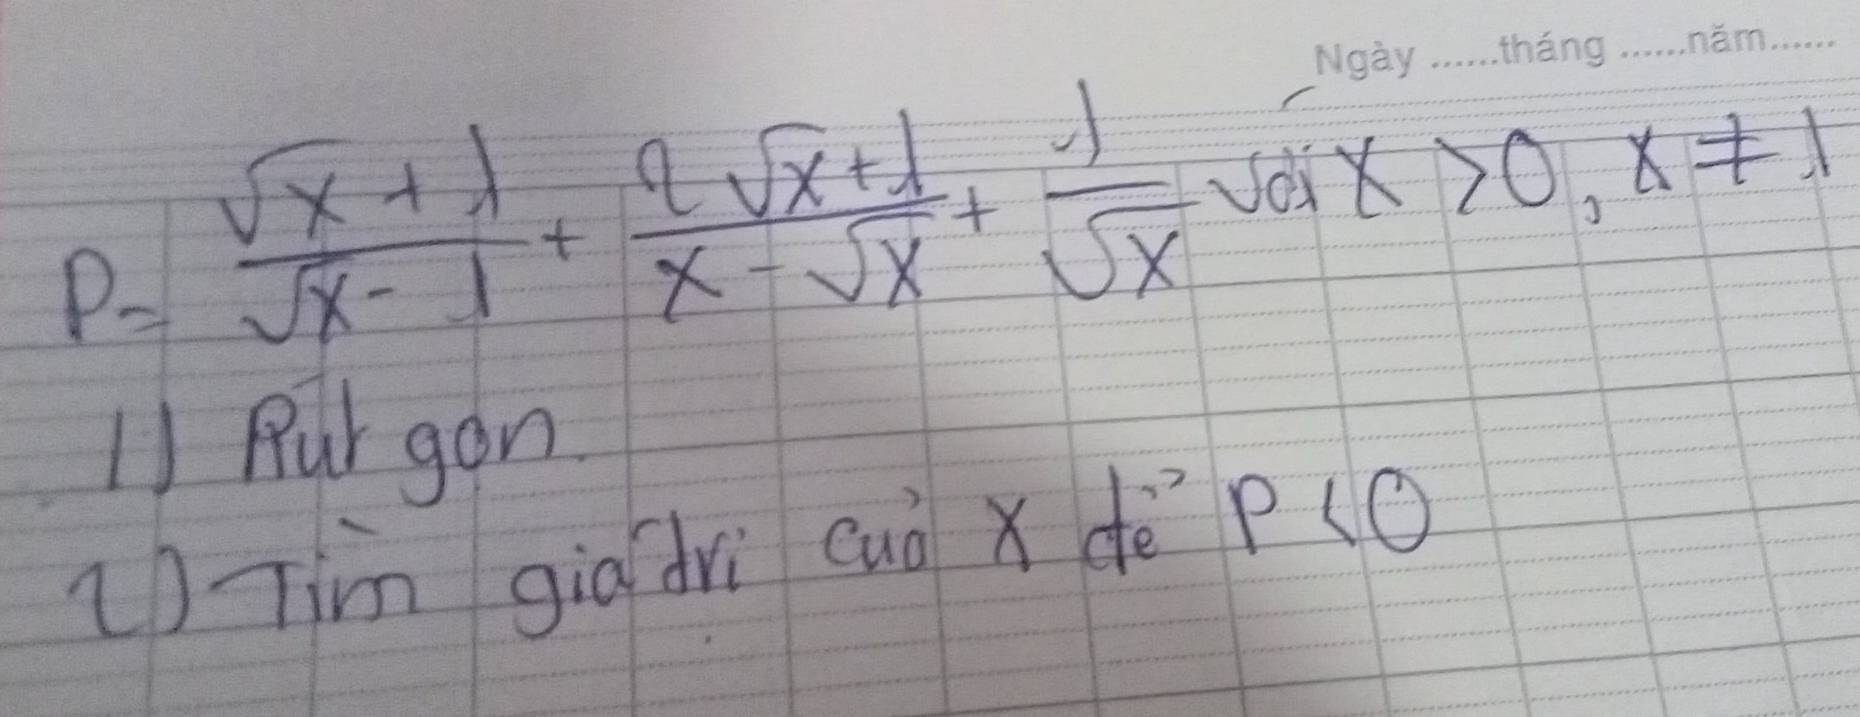 Ngày ......tháng ......năm......
P = \frac{\sqrt{x}+1}{\sqrt{x}-1} + \frac{2\sqrt{x}+1}{x-\sqrt{x}} + \frac{1}{\sqrt{x}} với x > 0, x ≠ 1
1) Rút gọn.
2) Tìm giá trị của x để P < 0